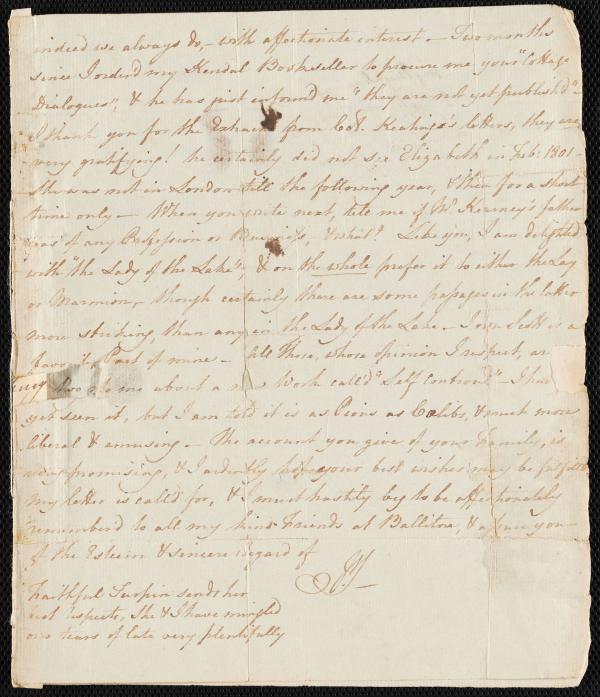 indeed we always do, – with affectionate interest – Two months
since I orderd my Kendal Bookseller to procure me your "Cottage
Dialogues", & he has just informd me "they are not yet publishd" –
I thank you for the Extracts from Col. Keatinge's letters, they are
very gratifying! he certainly did not see Elizabeth in Feb: 1801 –
She was not in London till the following year, & then for a short
time only – When you write next, tell me if Mr. Kearney's father
was of any Profession or Business, & what? Like you, I am delighted
with "the Lady of the Lake", & on the whole prefer it to either the Lay
or Marmion, though certainly there are some passages in the latter
more striking, than any in the Lady of the Lake – Scott is a
favorite Poet of mine – All those, whose opinion I respect, are
about a new Work called "Self controul" – I have
yet seen it, but I am told it is as Pious as Cœlebs, & much more
liberal & amusing – The account you give of your Families, is
very promising, & I ardently hope your best wishes may be fulfilld
My letter is called for, & I must hastily beg to be affectionately
rememberd to all my kind Friends at Ballitore, & assure you
of the Esteem & sincere regard of
Faithful Turpin sends her
best respects, She & I have mingled
our tears of late very plentifully